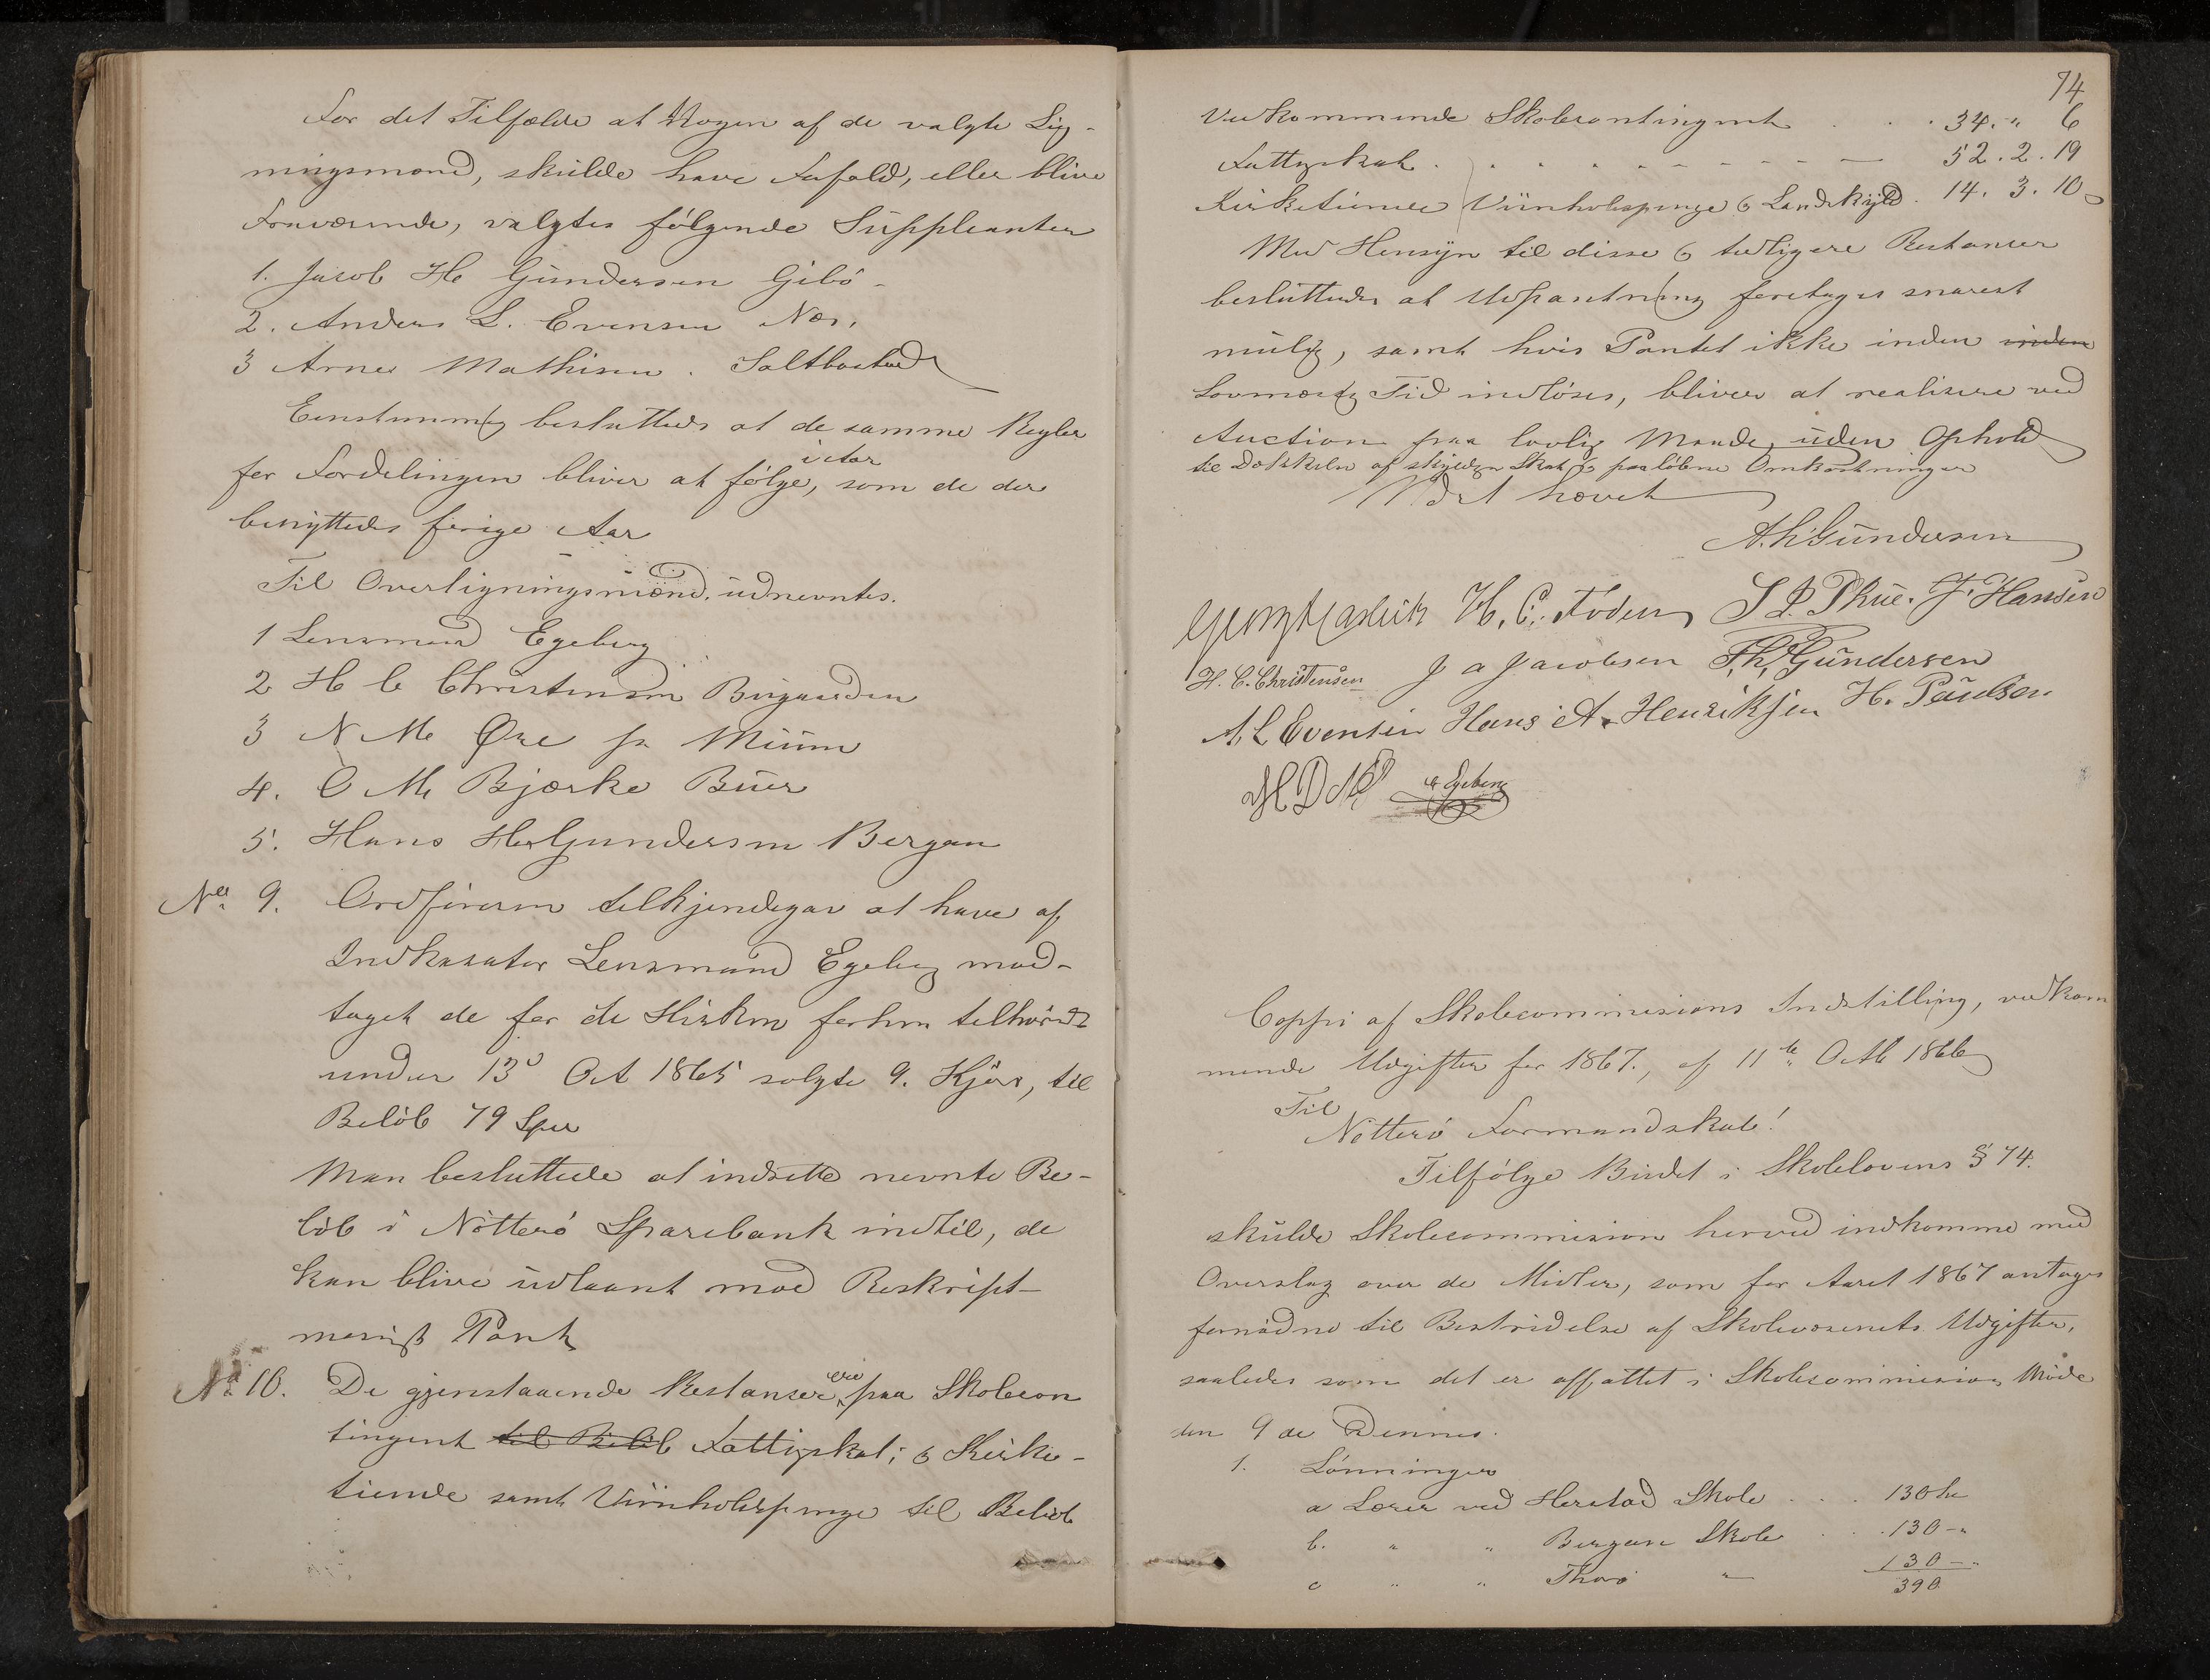 For det Tilfælde at Nogen af de valgte Lig-
ningsmænd, skulde have Forfald, eller blive
Fraværende, valgtes følgende Suppleanter
1. Jacob H Gundersen Gibø
2. Anders L. Evensen Nes.
3 Arnes Mathisen. Saltbostad
Eenstemmig besluttedes at de samme Regler
iaar
for Fordelingen bliver at følge, som de der
benyttedes forige Aar
Til Overligningsmænd, udnevntes.
1 Lensmand Egeberg
2 H C Christensen
3 N M Øre fr
4. O M Bjærke Buer
5. Hans H Gundersen Bergan
No 9. Ordføreren tilkjendegav at have af
Indkasator Lensmand Egeberg mod-
taget de for de Kirken forhen tilhørende
under 13de Oct 1865 solgte 9. Kjør, til
Beløb 79 Spd
Man besluttede at indsette nevnte Be-
løb i Nøtterø Sparebank indtil, de
kan blive udlaant mod Reskript-
mæssigt Pant
No 10. De gjenstaaende Restanser paa Skolecon
tingent til Beløb Fattigskat; & Kirke-
tiende samt Viinholspenge til Beløb
74
Vedkommende Skolecontingent . . . 34. " 6
Fattigskat . . . . . . . . 52. 2. 19
Kirketiende Viinholspenge & Landskyld. 14. 3. 10
Med Hensyn til disse & tidligere Restanser
besluttedes at Udpantning foretages snarest
mulig, samt hvis Pantet ikke inden inden
Lovmæssig Tid indløses, bliver at realisere ved
Auction paa lovlig Maade, uden Ophold
til Dækkelse af skyldig Skat & paaløbne Omkostninger
Mødet hævet
A. h Gundersen
H. C. Foden J. Hansen
H. C. Christensen J a Jacobsen Th. Gundersen
A. L Evensen Hans A. Henriksen H. Paulsen
Egeberg
Coppi af Skolecommisions Indstilling, vedkom
mende Udgifter for 1867., af 11te Octb 1866
Til
Nøtterø Formandskab!
Tilfølge Budet i Skolelovens § 74.
skulde Skolecommision herved indkomme med
Overslag over de Midler, som for Aaret 1867 antages
fornødne til Bestridelse af Skolevæsenets Udgifter,
saaledes som det er affattet i Skolecommisions Møde
den 9 de Dennes.
1. Lønninger
a Lærer ved Herstad Skole . . . 130
b. " " Bergan Skole . . . 130 - "
c " " Thorø " 130 - "
390